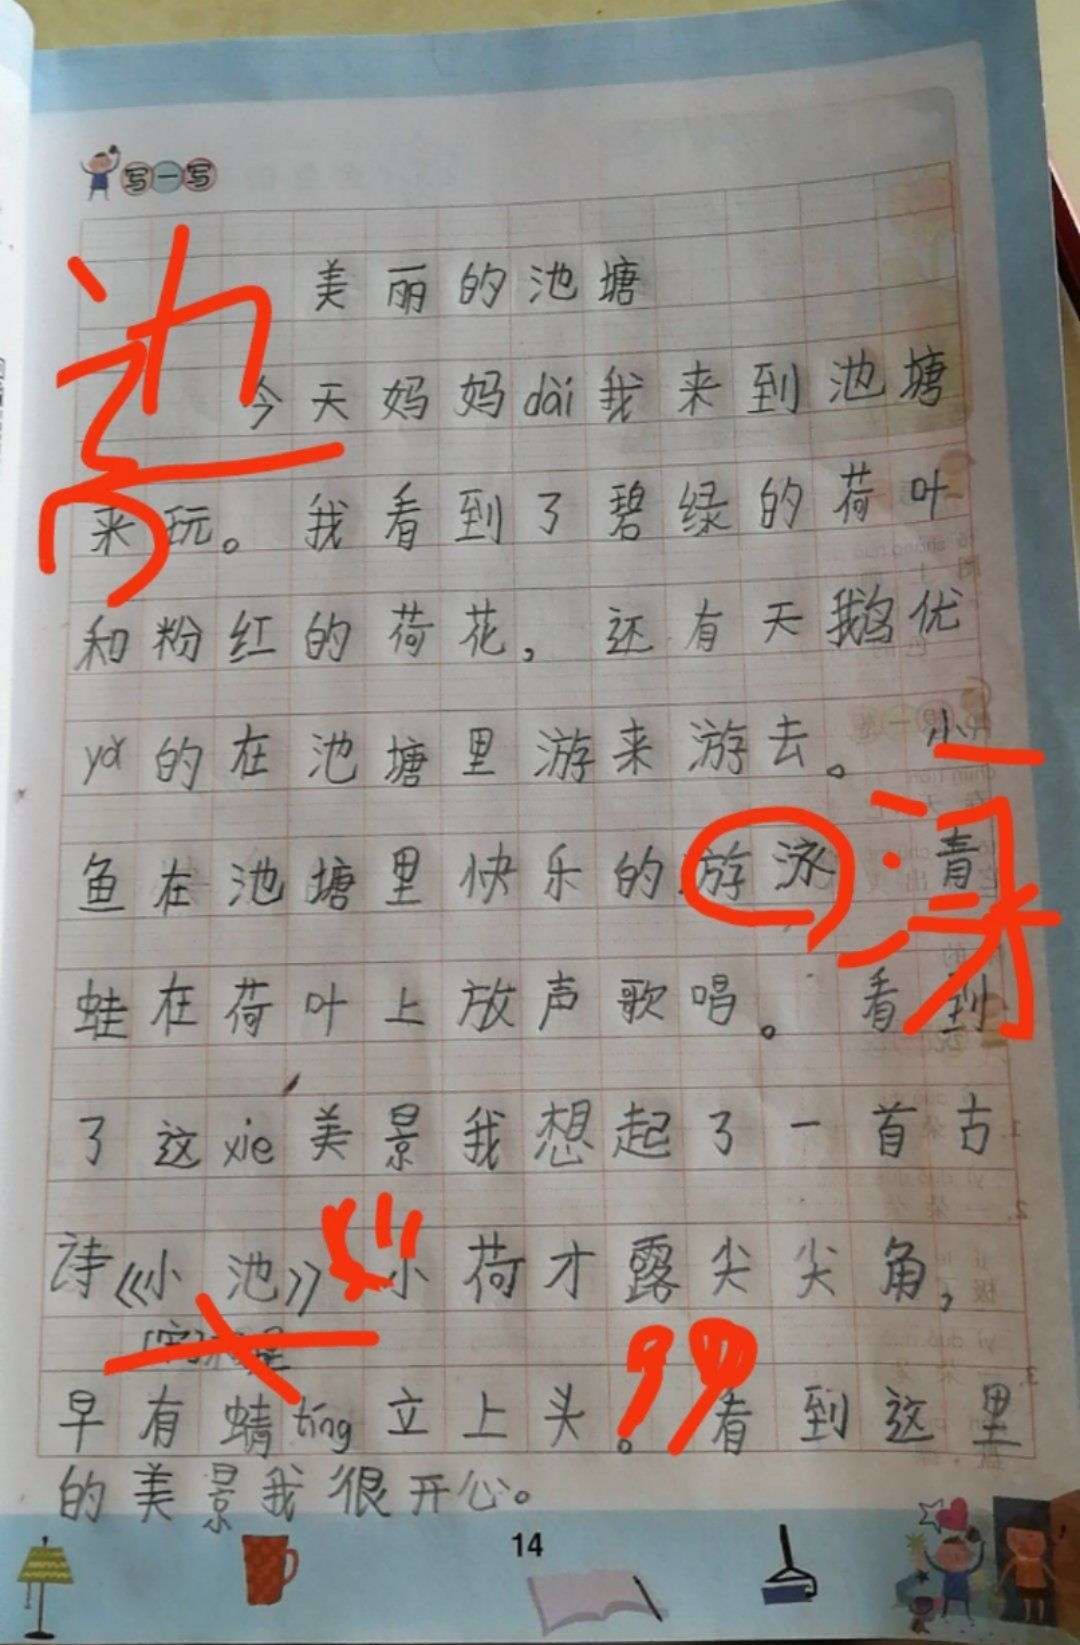 写一写
美丽的池塘
今天妈妈dài我来到池塘
来玩。我看到了碧绿的荷叶
和粉红的荷花,还有天鹅优
yǎ的在池塘里游来游去。小
鱼在池塘里快乐的游泳,青
蛙在荷叶上放声歌唱。看到
了这xie美景我想起了一首古
诗《小池》“小荷才露尖尖角,
早有蜻tíng立上头。”看到这里
的美景我很开心。
14